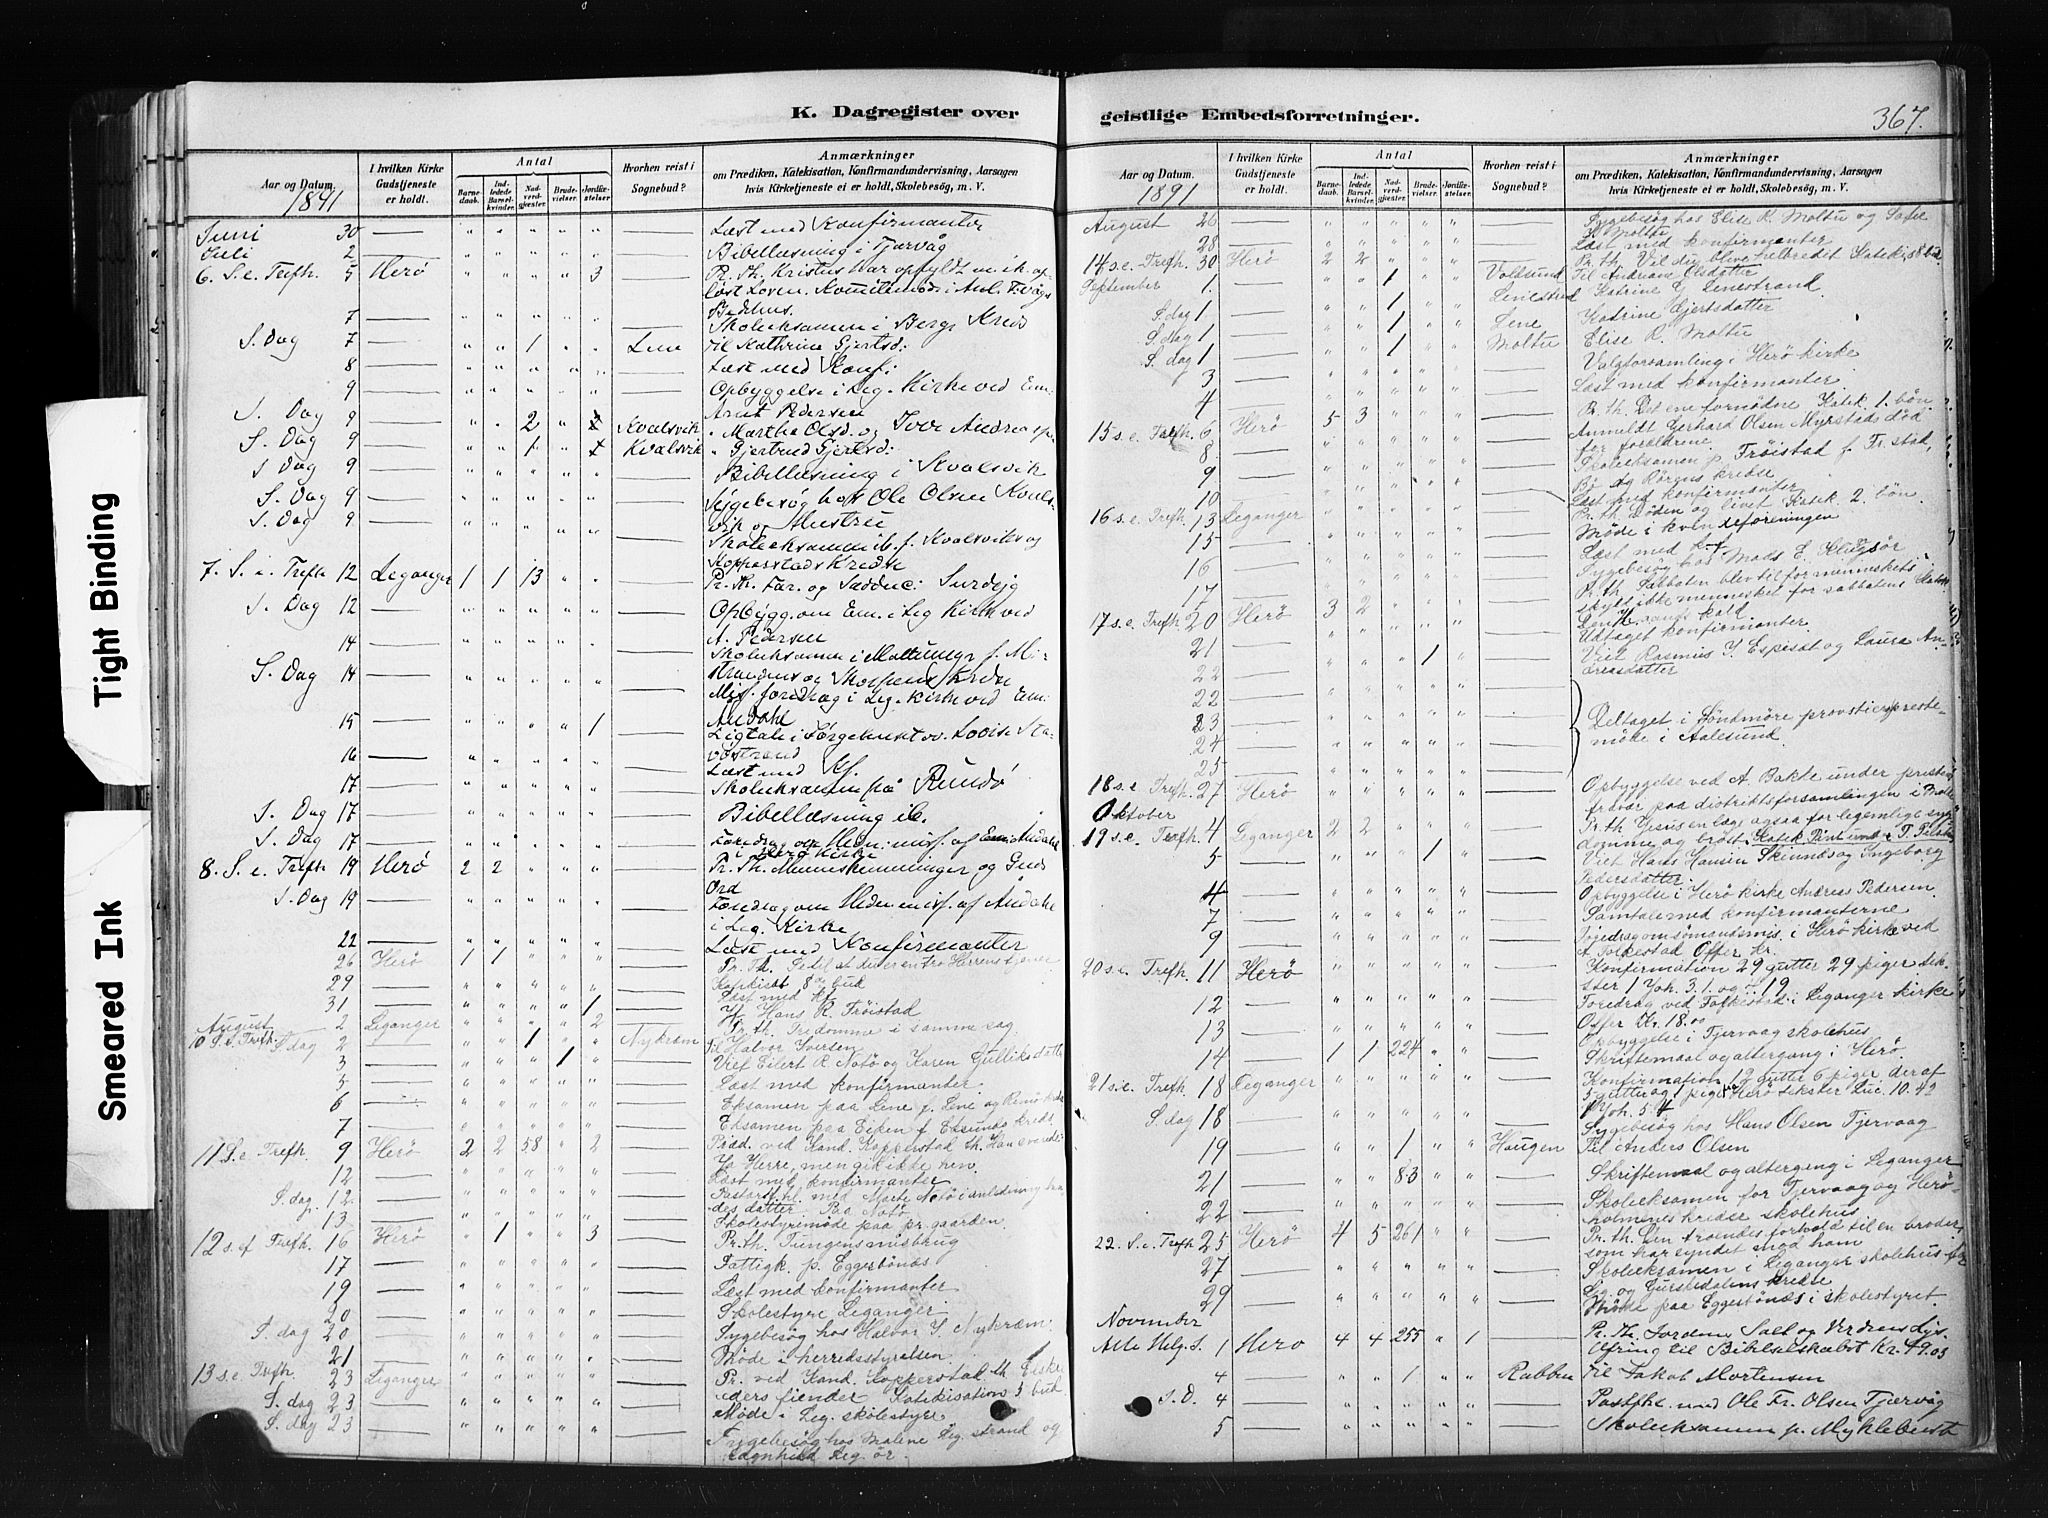 K. Dagregister over
geistlige Embedsforretninger.
367.
Tight Binding
Smeared Ink
Aar og Datum.
1891
I hvilken Kirke
Gudstjeneste
er holdt.
Antal
Barne-
daab.
Ind-
ledede
Barsel-
kvinder.
Nad-
verd-
gjester.
Brude-
vielser.
Jordfæ-
stelser
Hvorhen reist i
Sognebud?
Anmærkninger
om Prædiken, Katekisation, Konfirmandundervisning, Aarsagen
hvis Kirketjeneste ei er holdt, Skolebesøg, m. V.
Juni 30 Læst med Konfirmanter
Juli 2 Bibellæsning i Tjørvåg
6. S. e. Trefh. 5 Herö " " " " 3 Pr. Th. Kristus har opfyldt
løst Loven.
Bedehus.
7 Skoleeksamen i Bergs Kreds
S. Dag 7 " " 1 " " Lene til Kathrine Gjertsd:
8 Læst med Konf:
9 Opbyggelse i Leg. Kirke ved Em:
Arnt Pedersen
S. Dag 9 " " 2 " Kvalsvik " Marthe Olsd. og Iver Andrea
S. Dag 9 " " 1 " Kvalsvik " Gjertrud Gjertsd:
S Dag 9 Bibellæsning i Kvalsvik
S. Dag 9 Sygebesøg hos Ole Olsen Kvals-
vik og Hustru
S. Dag 9 Skoleeksamen ib. f. Kvalsviks og
Koppastads Kredse
7. S. e. Trefh. 12 Leganger 1 1 13 " " Pr. Th. Far. og Sadduc: Surdejg
S. Dag 12 Opbygg. om Em. i Leg Kirke ved
A. Pedersen
14 Skoleeksamen i
S. Dag 14 Mis. foredrag i Leg. Kirke ved Em:
Andahl
15 " " " " 1 Ligtale i Sørgehuset ov. Lovise
16 Læst med Kf.
17 Skoleeksamen på Rundö
S. Dag 17 Bibellæsning ib.
S. Dag 17 Foredrag om Hedn: mis. af Em: Andahl
i Herö Kirke
8. S. e. Trefh 19 Herö 2 2 " " " Pr. Th. Menneskemeninger og Guds
Ord
S. Dag 19 Foredrag om Hedn mis. af Andahl
i Leg. Kirke
22 Læst med Konfirmanter
26 Herö 1 1 " " " Pr. Th. Se til at du er en tro Herrens tjener
Katekisat 8de bud
29 Læst med kf
31 " " " " 1 Hans R. Tröistad
August 2 Leganger " " " " 2 Pr. th. Tredomme i samme sag
10 S. e. Trefh. S. dag 2 " " 1 " " Nykræm Til Halvor Iversen
3 " " " 1 " Viet Eilert R. Notö og Karen Gulliksdatter
5 Læst med konfirmanter
6 Eksamen paa Lene f. Lene og Remö kreds
7 Eksamen paa Eiken f. kreds
11 S. e. Trefh. 9 Herö 2 2 58 " 2 Præd. ved Kand. Kopperstad th. Han svarede:
Ja Herre, men gik ikke hen
12 Læst med konfirmanter
S. dag 12 med Marte Notö i anledning
des datter. Paa Notö
13 Skolestyremöde paa pr. gaarden
12 s. ef Trefh. 16 Herö " 1 " " 3 Pr. th. Tungens misbrug
17 Fattigk. p. Eggesbönes
19 Læst med konfirmanter
20 Skolestyre Leganger
S. dag 20 Sygebesög hos Halvor I. Nykræm
21 Möde i herredsstyrelsen
13 s. e. Trefh. 23 Leganger Pr. ved Kand. Kopperstad th Elske
eders fiender Katekisation 3 bud
S. dag 23 Möde i Leg. skolestyre
S. dag 23 Sygebesög hos Malene Leg. strand og
Ragnhild Leg. ör.
Aar og Datum.
1891
I hvilken Kirke
Gudstjeneste
er holdt.
Antal
Barne-
daab.
Ind-
ledede
Barsel-
kvinder.
Nad-
verd-
gjester.
Brude-
vielser.
Jordfæ-
stelser
Hvorhen reist i
Sognebud?
Anmærkninger
om Prædiken, Katekisation, Konfirmandundervisning, Aarsagen
hvis Kirketjeneste ei er holdt, Skolebesøg, m. V.
August 26 Sygebesög hos Elise R. Moltu og Sofie
Moltu
28 Læst med konfirmanter
14 s. e. Trefh. 30 Herö 2 2 Pr. th. Vil du blive helbredet Katekis 8 bud
September 1 " " 1 " " Voldsund Til Andriane Olsdatter
S. dag 1 " " 1 " " Lenestrand Katrine G Lenestrand
S. dag 1 " " 1 " " Lene Katrine Ejertsdatter
S. dag 1 " " 1 " " Moltu Elise R. Moltu
3 Valgforsamling i Herö kirke
4 Læst med konfirmanter
15 s. e. Trefh. 6 Herö 5 3 Pr. th. Det ene fornödne Katek. 1. bön
8 Anmeldt Gerhard Olsen Myrstad död
for forældrene
9 Skoleeksamen p. Tröistad f. Tr.stad,
Bö og Rörgns kredse
10 Læst med konfirmanter
16 s. e. Trefh. 13 Leganger Pr. th Döden og livet Katek 2. bön
15 Möde i kvindeforeningen
16 Læst med kf
17 Sygebesög hos Mads E.
17 s. e. Trefh. 20 Herö 3 2 Pr. th. Sabbaten blev til for menneskets
skyld ikke mennesket for sabbatens
21 Udtaget konfirmanter
22 " " " 1 " Viet Rasmus J. Espesæt og Laura An-
dreasdatter
22
23 Deltaget i Söndmöre provstiepreste-
24 möde i Aalesund.
25
18 s. e. Trefh. 27 Herö Opbyggelse ved A. Bakke under prestens
fravær paa distriktsforsamlingen i
Oktober
19 s. e. Trefh. 4 Leganger 2 2 Pr. th Jesus en læge ogsaa for legemlige syg-
domme og bröst
5 " " " 1 " Viet Hans Hansen og Ingeborg
Pedersdatter
4 Opbyggelse i Herö kirke Andreas Pedersen
7 Samtale med konfirmanterne
9 Foredrag om sömandsmis. i Herö kirke ved
A Folkestad Offer kr.
20 s. e. Trefh. 11 Herö Konfirmation 29 gutter 29 piger tek-
ster 1 Joh. 3.1. og
12 Foredrag ved Folkestad i Leganger kirke
Offer kr. 18.00
13 Opbyggelse i Tjervaag skolehus
14 1 1 224 " " Skriftemaal og altergang i Herö
21 s. e. Trefh. 18 Leganger Konfirmation 12 gutter 6 piger deraf
5 gutter og 1 pige fra Herö tekster Luc. 10.42
1 Joh. 5.4
S. dag 18 Sygebesög hos Hans Olsen Tjervaag
19 " " 1 " " Haugen Til Anders Olsen
21 " " 83 " " Skriftemaal og altergang i Leganger
22 Skoleeksamen for Tjervaag og Herö-
holmens kredser skolehus
22. S. e. Trefh 25 Herö 4 5 261 " " Pr. th. Den troendes forhold til en broder
som har syndet mod ham
27 Skoleeksamen i Leganger skolehus for
Leg. og Gurskedalens kredse
29 Möde paa Eggesbönes i skolestyret.
November
Alle Helg. S. 1 Herö 4 4 255 " 1 Pr. Th. Jordens Salt og Verdens Lys.
Ofring til Bibelselskabet Kr. 49.03
4 " " 1 " " Rabben til Jakob Mortensen
S. D. 4 med Ole Fr. Olsen Tjervåg
5 Skoleeksamen p. Myklebust